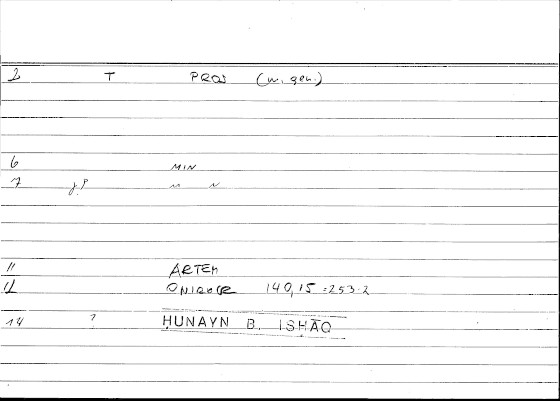 2 T PROS (w. gen.)
6 MIN
7 g.P " "
11 ARTEM
12 ONIROCR 140,15 = 253.2
14 ? ḤUNAYN B. ISḤĀQ